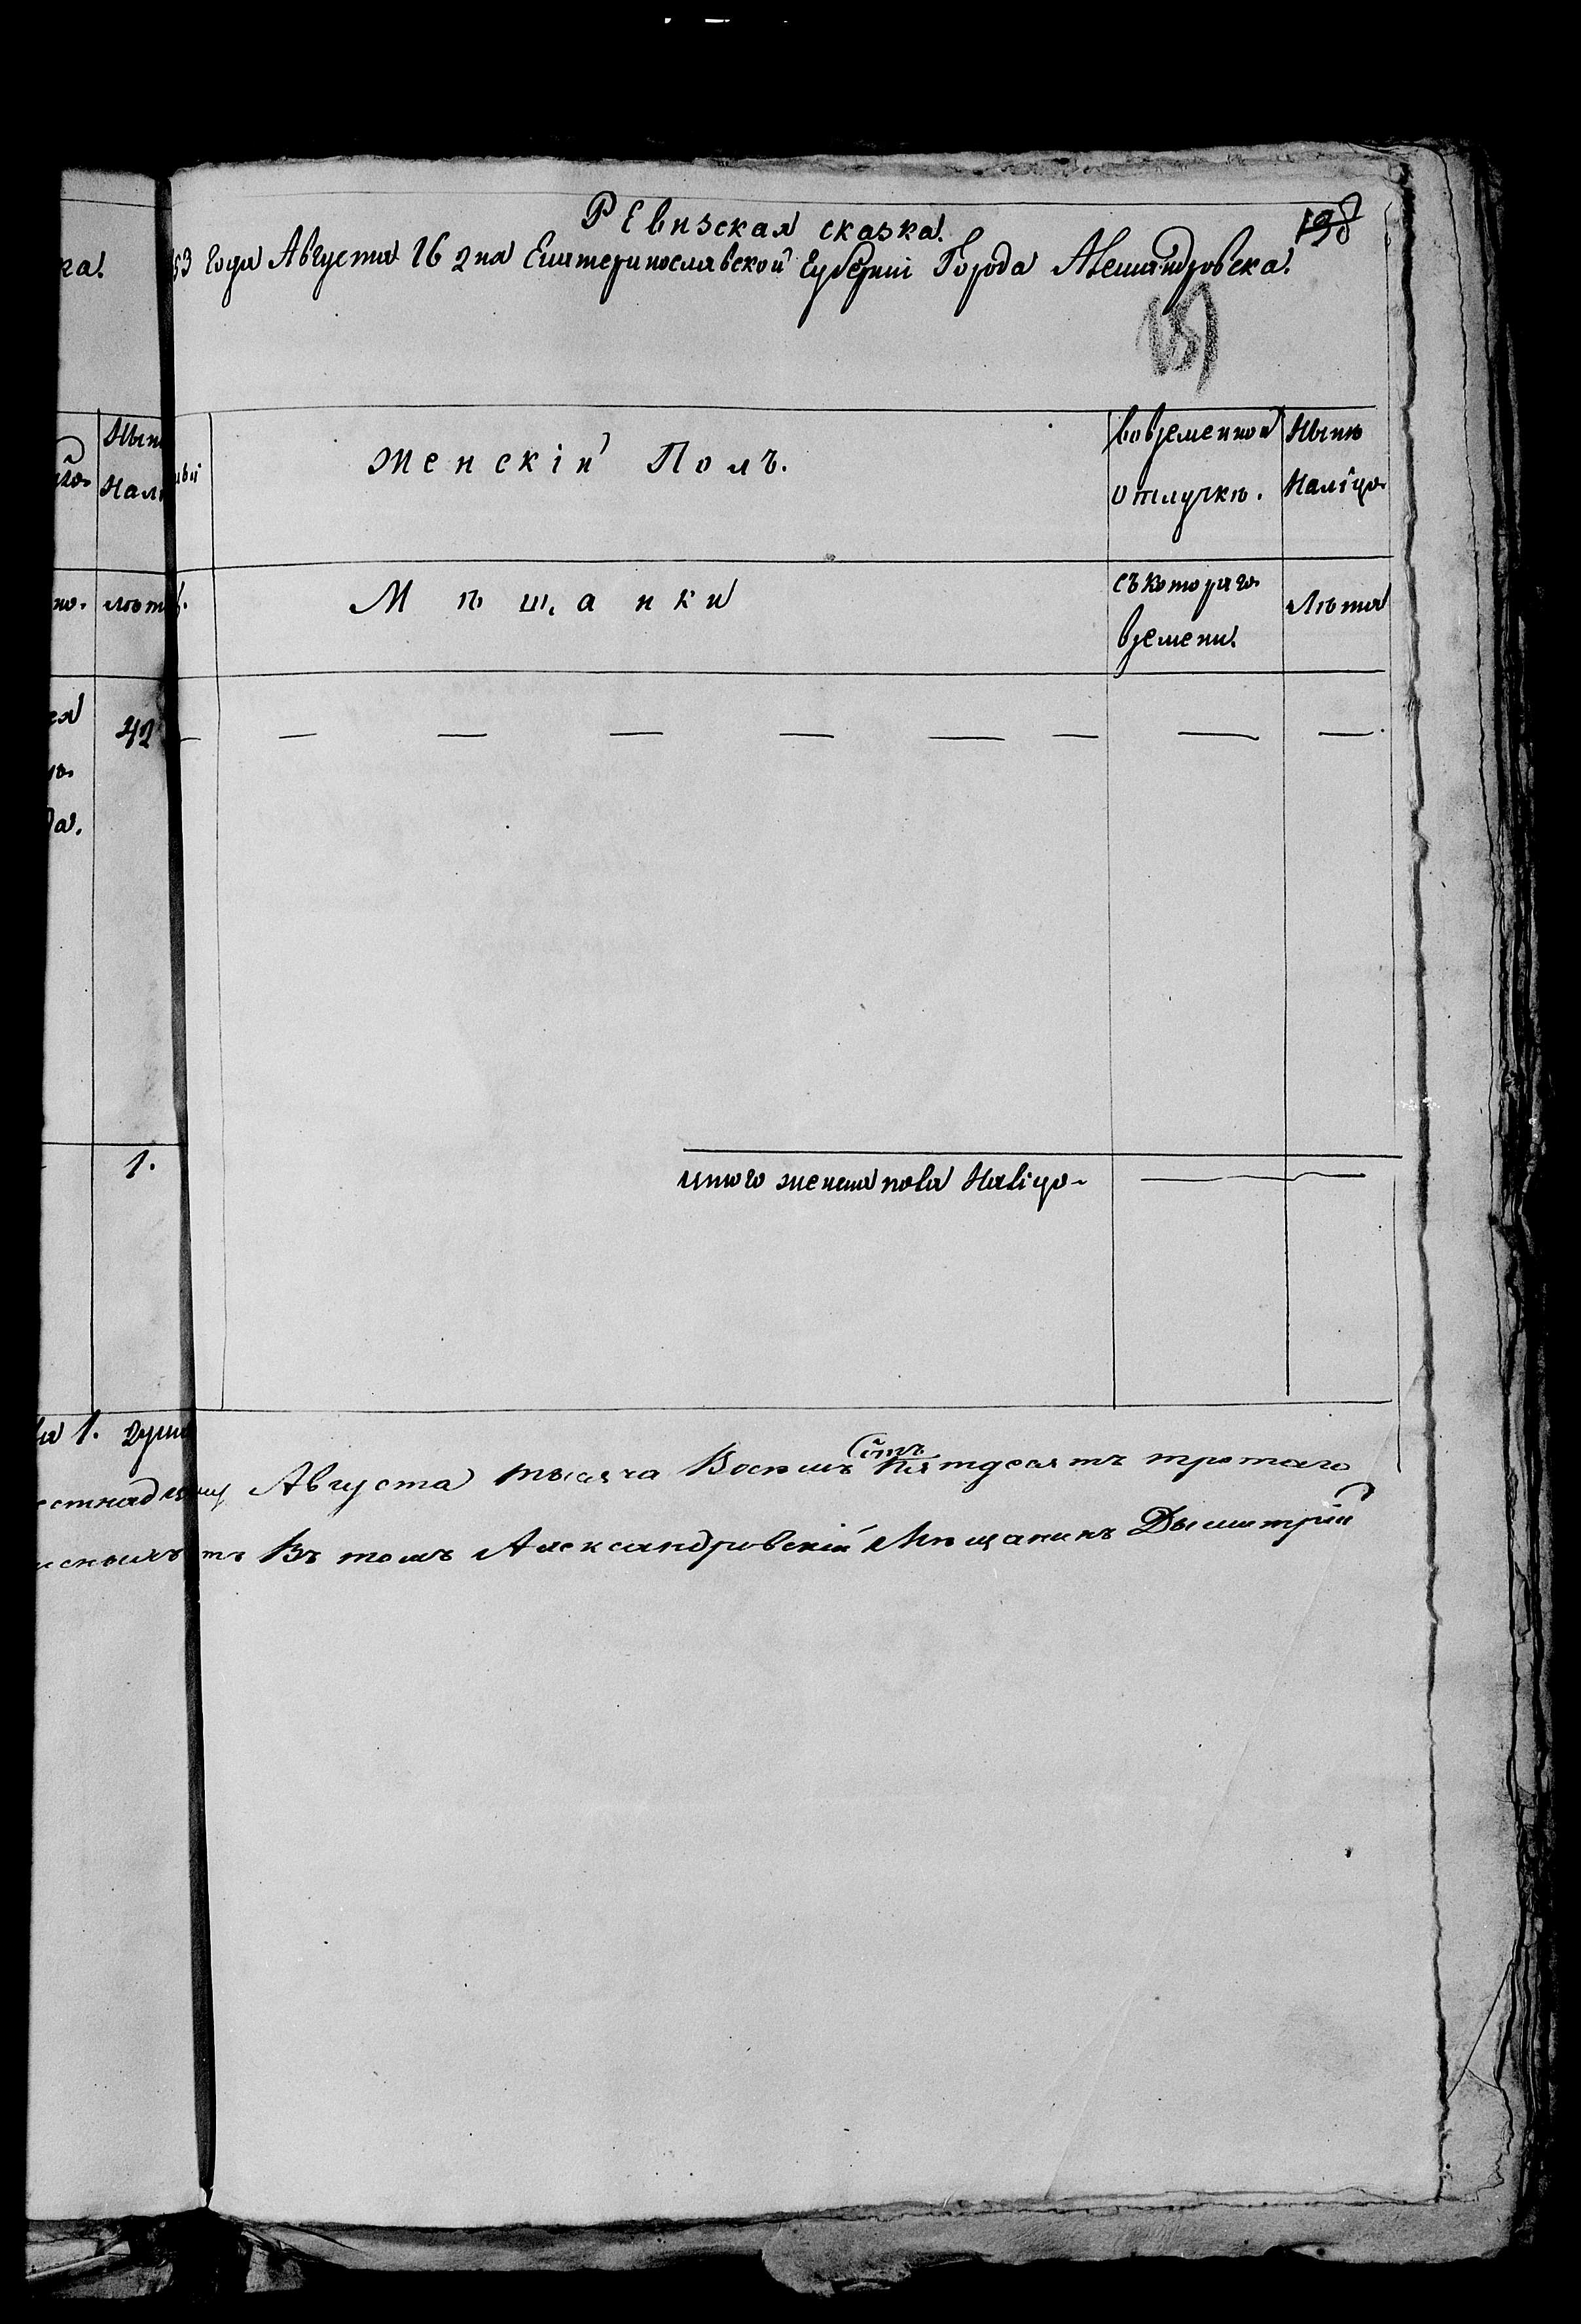 Ревизская сказка.
198
53 года Августа 16 дня Екатеринославской губерніи Города Александровска.
ка.
Женскій Полъ.
вовременной
отлучкѣ.
Нынѣ
Налицо
Мѣщанки
съкотораго
времени.
Лѣта
42
— — — — — — — —
1.
итого женска пола Налицо
1. душа
Августа тысяча Восемь Сотъ Пятдесятъ третаго
Въ томъ Александровскій Мѣщанинъ Дымитрій